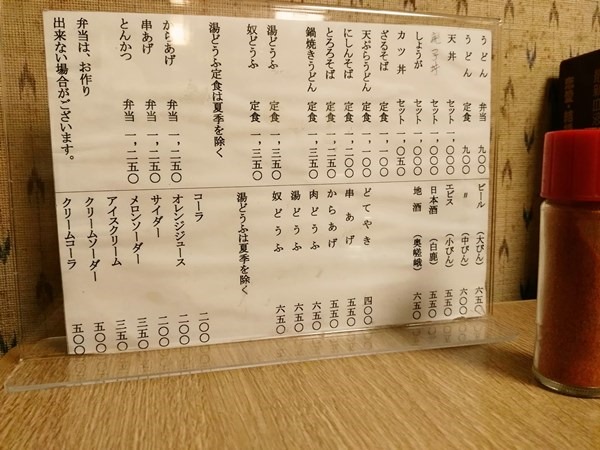 うどん 弁当 九〇〇
うどん 定食 九〇〇
天丼 セット 一,〇〇〇
セット 一,〇〇〇
しょうが セット 一,〇〇〇
カツ丼 セット 一,〇五〇
ざるそば 定食 一,一〇〇
天ぷらうどん 定食 一,〇〇〇
にしんそば 定食 一,二〇〇
とろろそば 定食 一,一〇〇
鍋焼きうどん 定食 一,三五〇
湯どうふ 定食 一,三五〇
奴どうふ 定食 一,三五〇
湯どうふ定食は夏季を除く
からあげ 弁当 一,二五〇
串あげ 弁当 一,二五〇
とんかつ 弁当 一,二五〇
弁当は、お作り
出来ない場合がございます。
ビール （大びん） 六五〇
〃 （中びん） 六〇〇
エビス （小びん） 五五〇
日本酒 （白鹿） 五五〇
地酒 （奥嵯峨） 六五〇
どてやき 四〇〇
串あげ 五五〇
からあげ 五五〇
肉どうふ 六五〇
湯どうふ 六五〇
奴どうふ 六五〇
湯どうふは夏季を除く
コーラ 二〇〇
オレンジジュース 二〇〇
サイダー 二〇〇
メロンソーダー 三五〇
アイスクリーム 三五〇
クリームソーダー 五〇〇
クリームコーラ 五〇〇